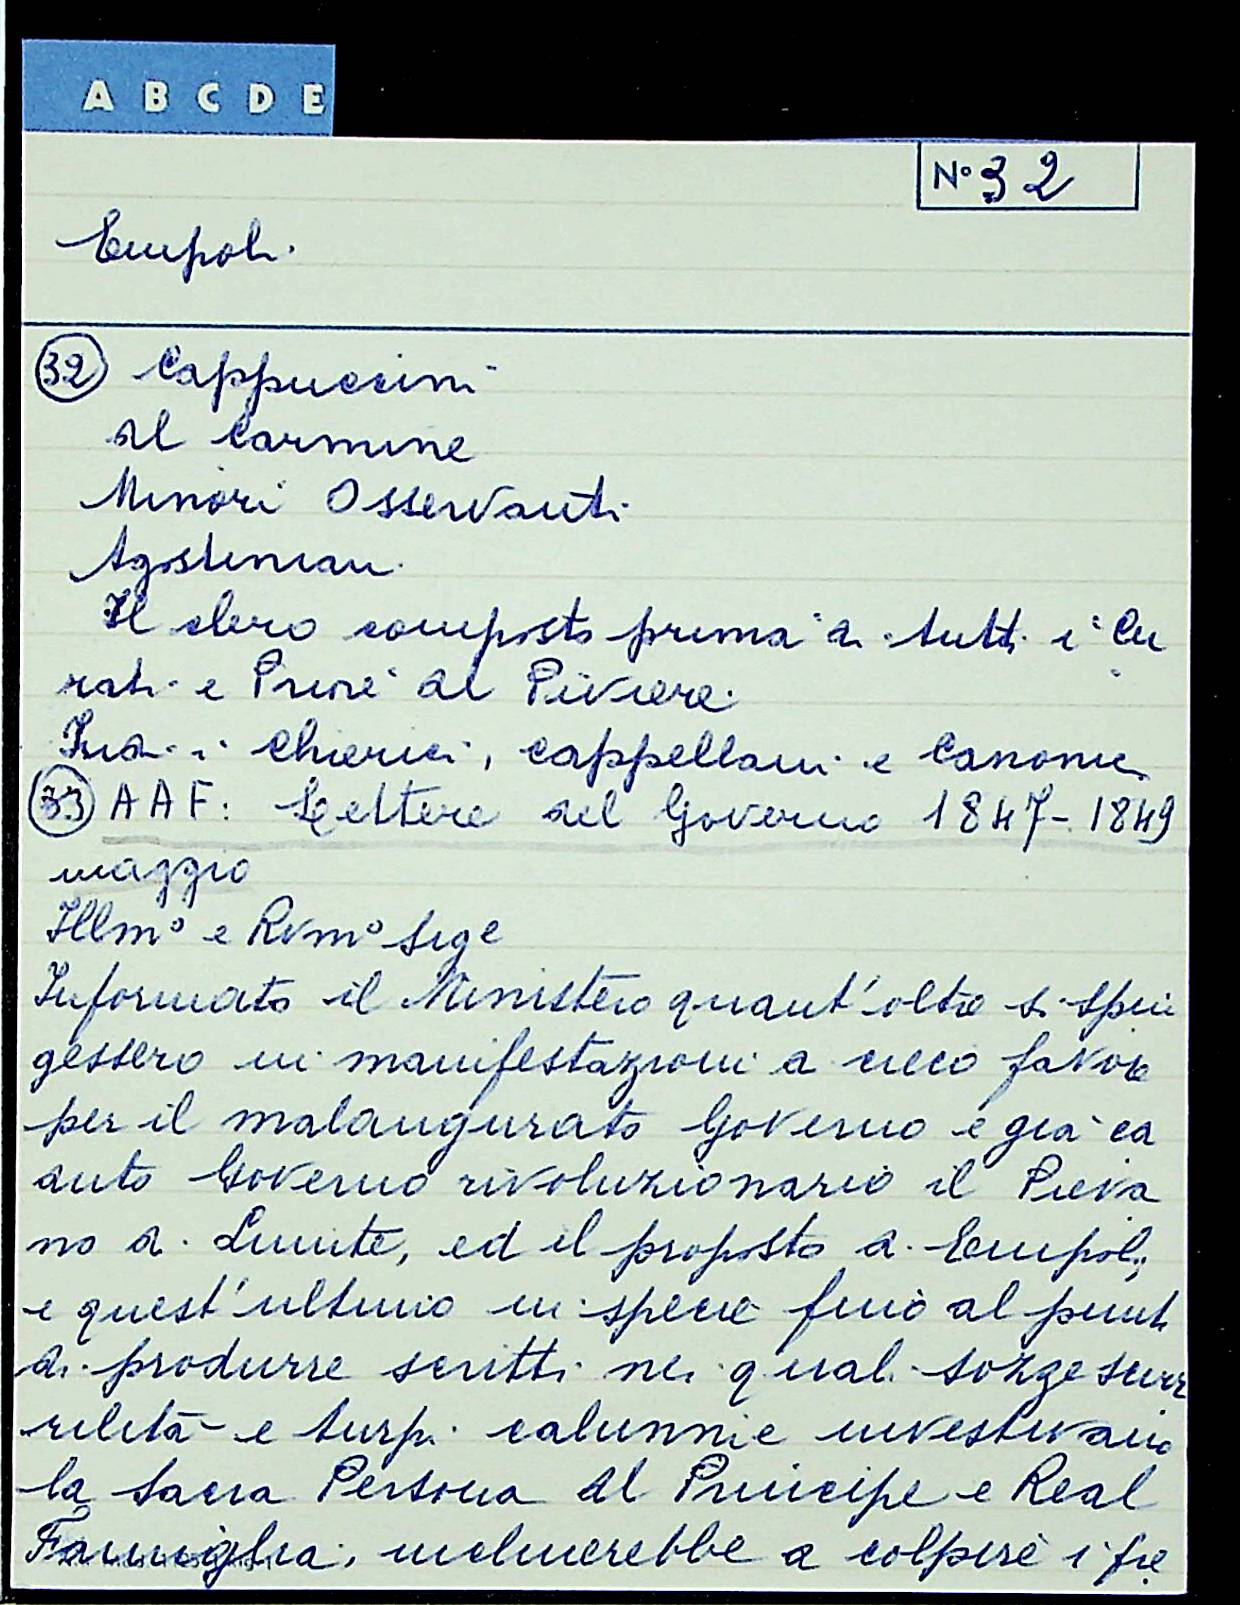 A B C D E
N° 32
Empoli.
32 Cappuccini
del Carmine
Minori Osservanti
Agostiniani
Il clero composto prima di tutti i Cu
rati e Priori del Piviere.
Indi i Chierici, cappellani e Canonici
33 AAF: Lettere del Governo 1847-1849
maggio
Illmo e Rvmo Sige
Informato il Ministero quant'oltre si spin
gessero in manifestazioni a cieco favore
per il malaugurato Governo e già ca
duto Governo rivoluzionario il Pieva
no di Limite, ed il proposto di Empoli,
e quest'ultimo in specie fino al punto
di produrre scritti nei quali sozze scurr
rilità e turpi calunnie investivano
la Sacra Persona del Principe e Real
Famiglia, inclinerebbe a colpire i fre